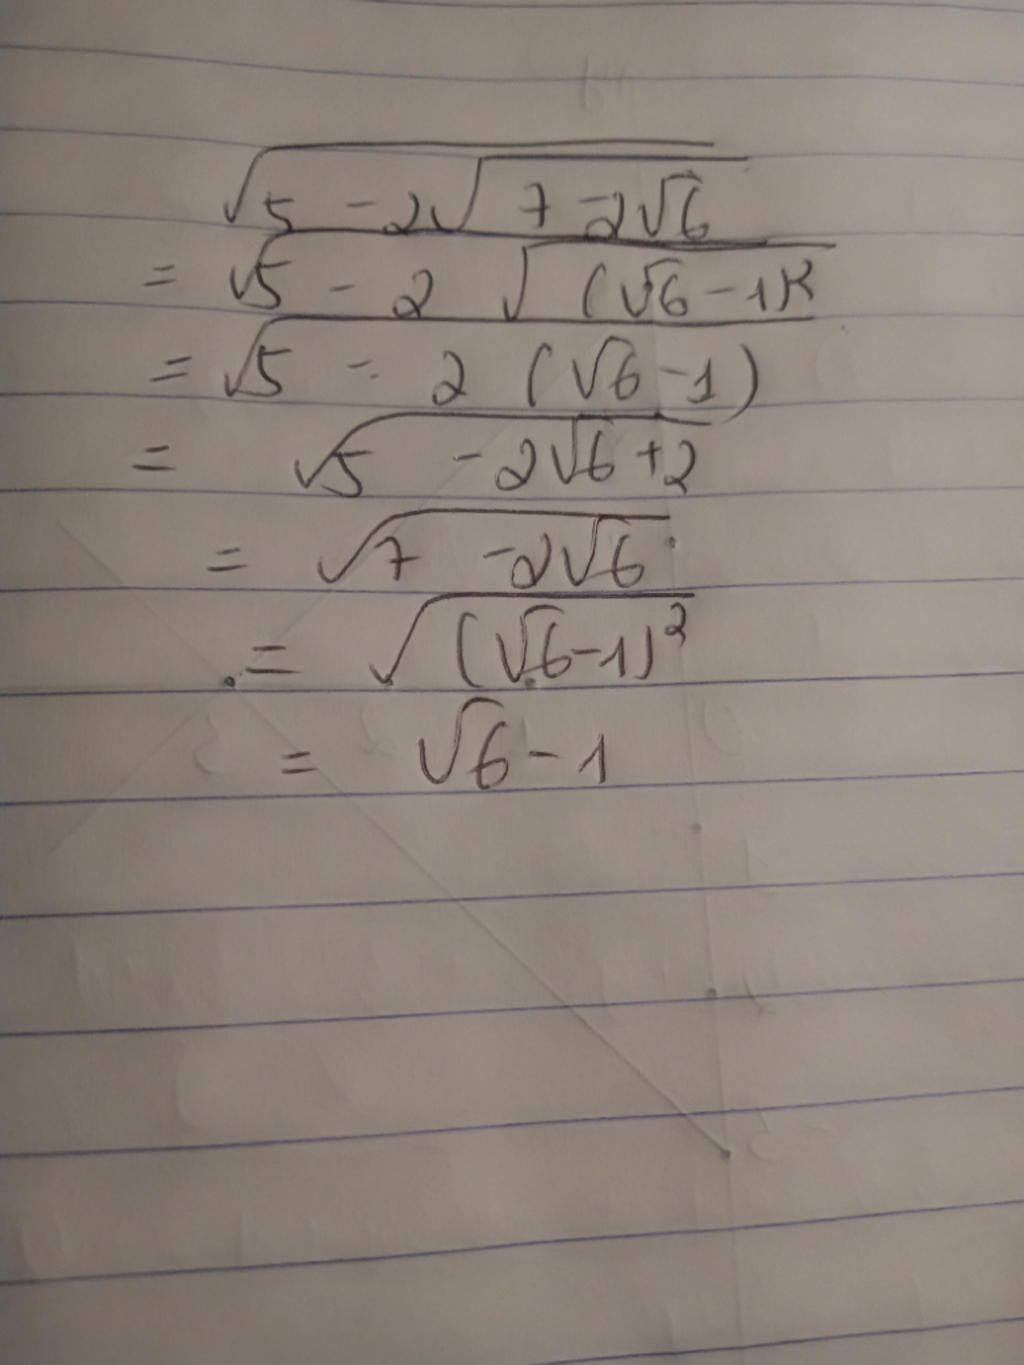 √(5 - 2√(7 - 2√6))
= √(5 - 2√((√6 - 1)²))
= √(5 - 2(√6 - 1))
= √(5 - 2√6 + 2)
= √(7 - 2√6)
= √((√6 - 1)²)
= √6 - 1